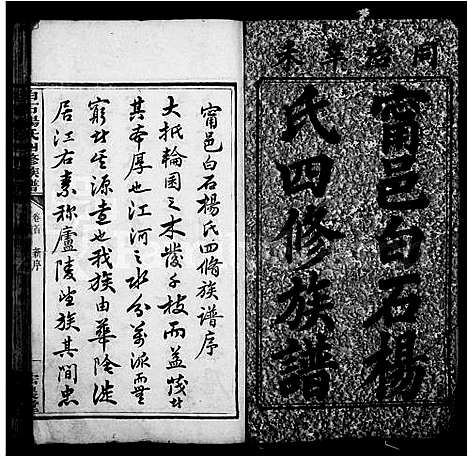 同治辛未
甯邑白石楊
氏四修族譜
甯邑白石楊氏四脩族譜序
大抵輪囷之木發千枝而益茂者
其本厚也江河之水分萬派而無
窮者其源遠也我族由華陰徙
居江右素稱廬陵望族其間忠
白石楊氏四修族譜
卷首
新序